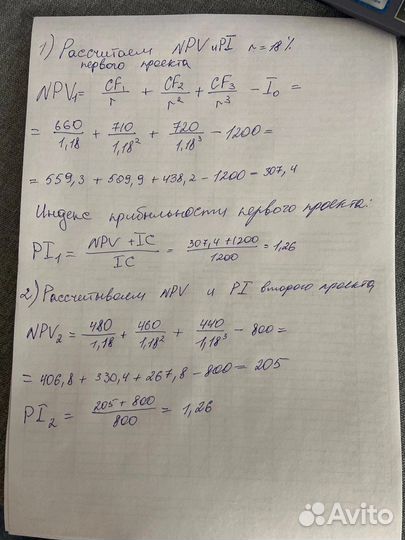 1) Рассчитаем NPV и PI r=18%
первого проекта
NPV₁= CF₁/r + CF₂/r² + CF₃/r³ - I₀ =
= 660/1,18 + 710/1,18² + 720/1,18³ - 1200=
= 559,3 + 509,9 + 438,2 - 1200 = 307,4
Индекс прибыльности первого проекта:
PI₁ = NPV + IC/IC = 307,4 + 1200/1200 = 1,26
2) Рассчитываем NPV и PI второго проекта
NPV₂ = 480/1,18 + 460/1,18² + 440/1,18³ - 800 =
= 406,8 + 330,4 + 267,8 - 800 = 205
PI₂ = 205 + 800/800 = 1,26
Avito